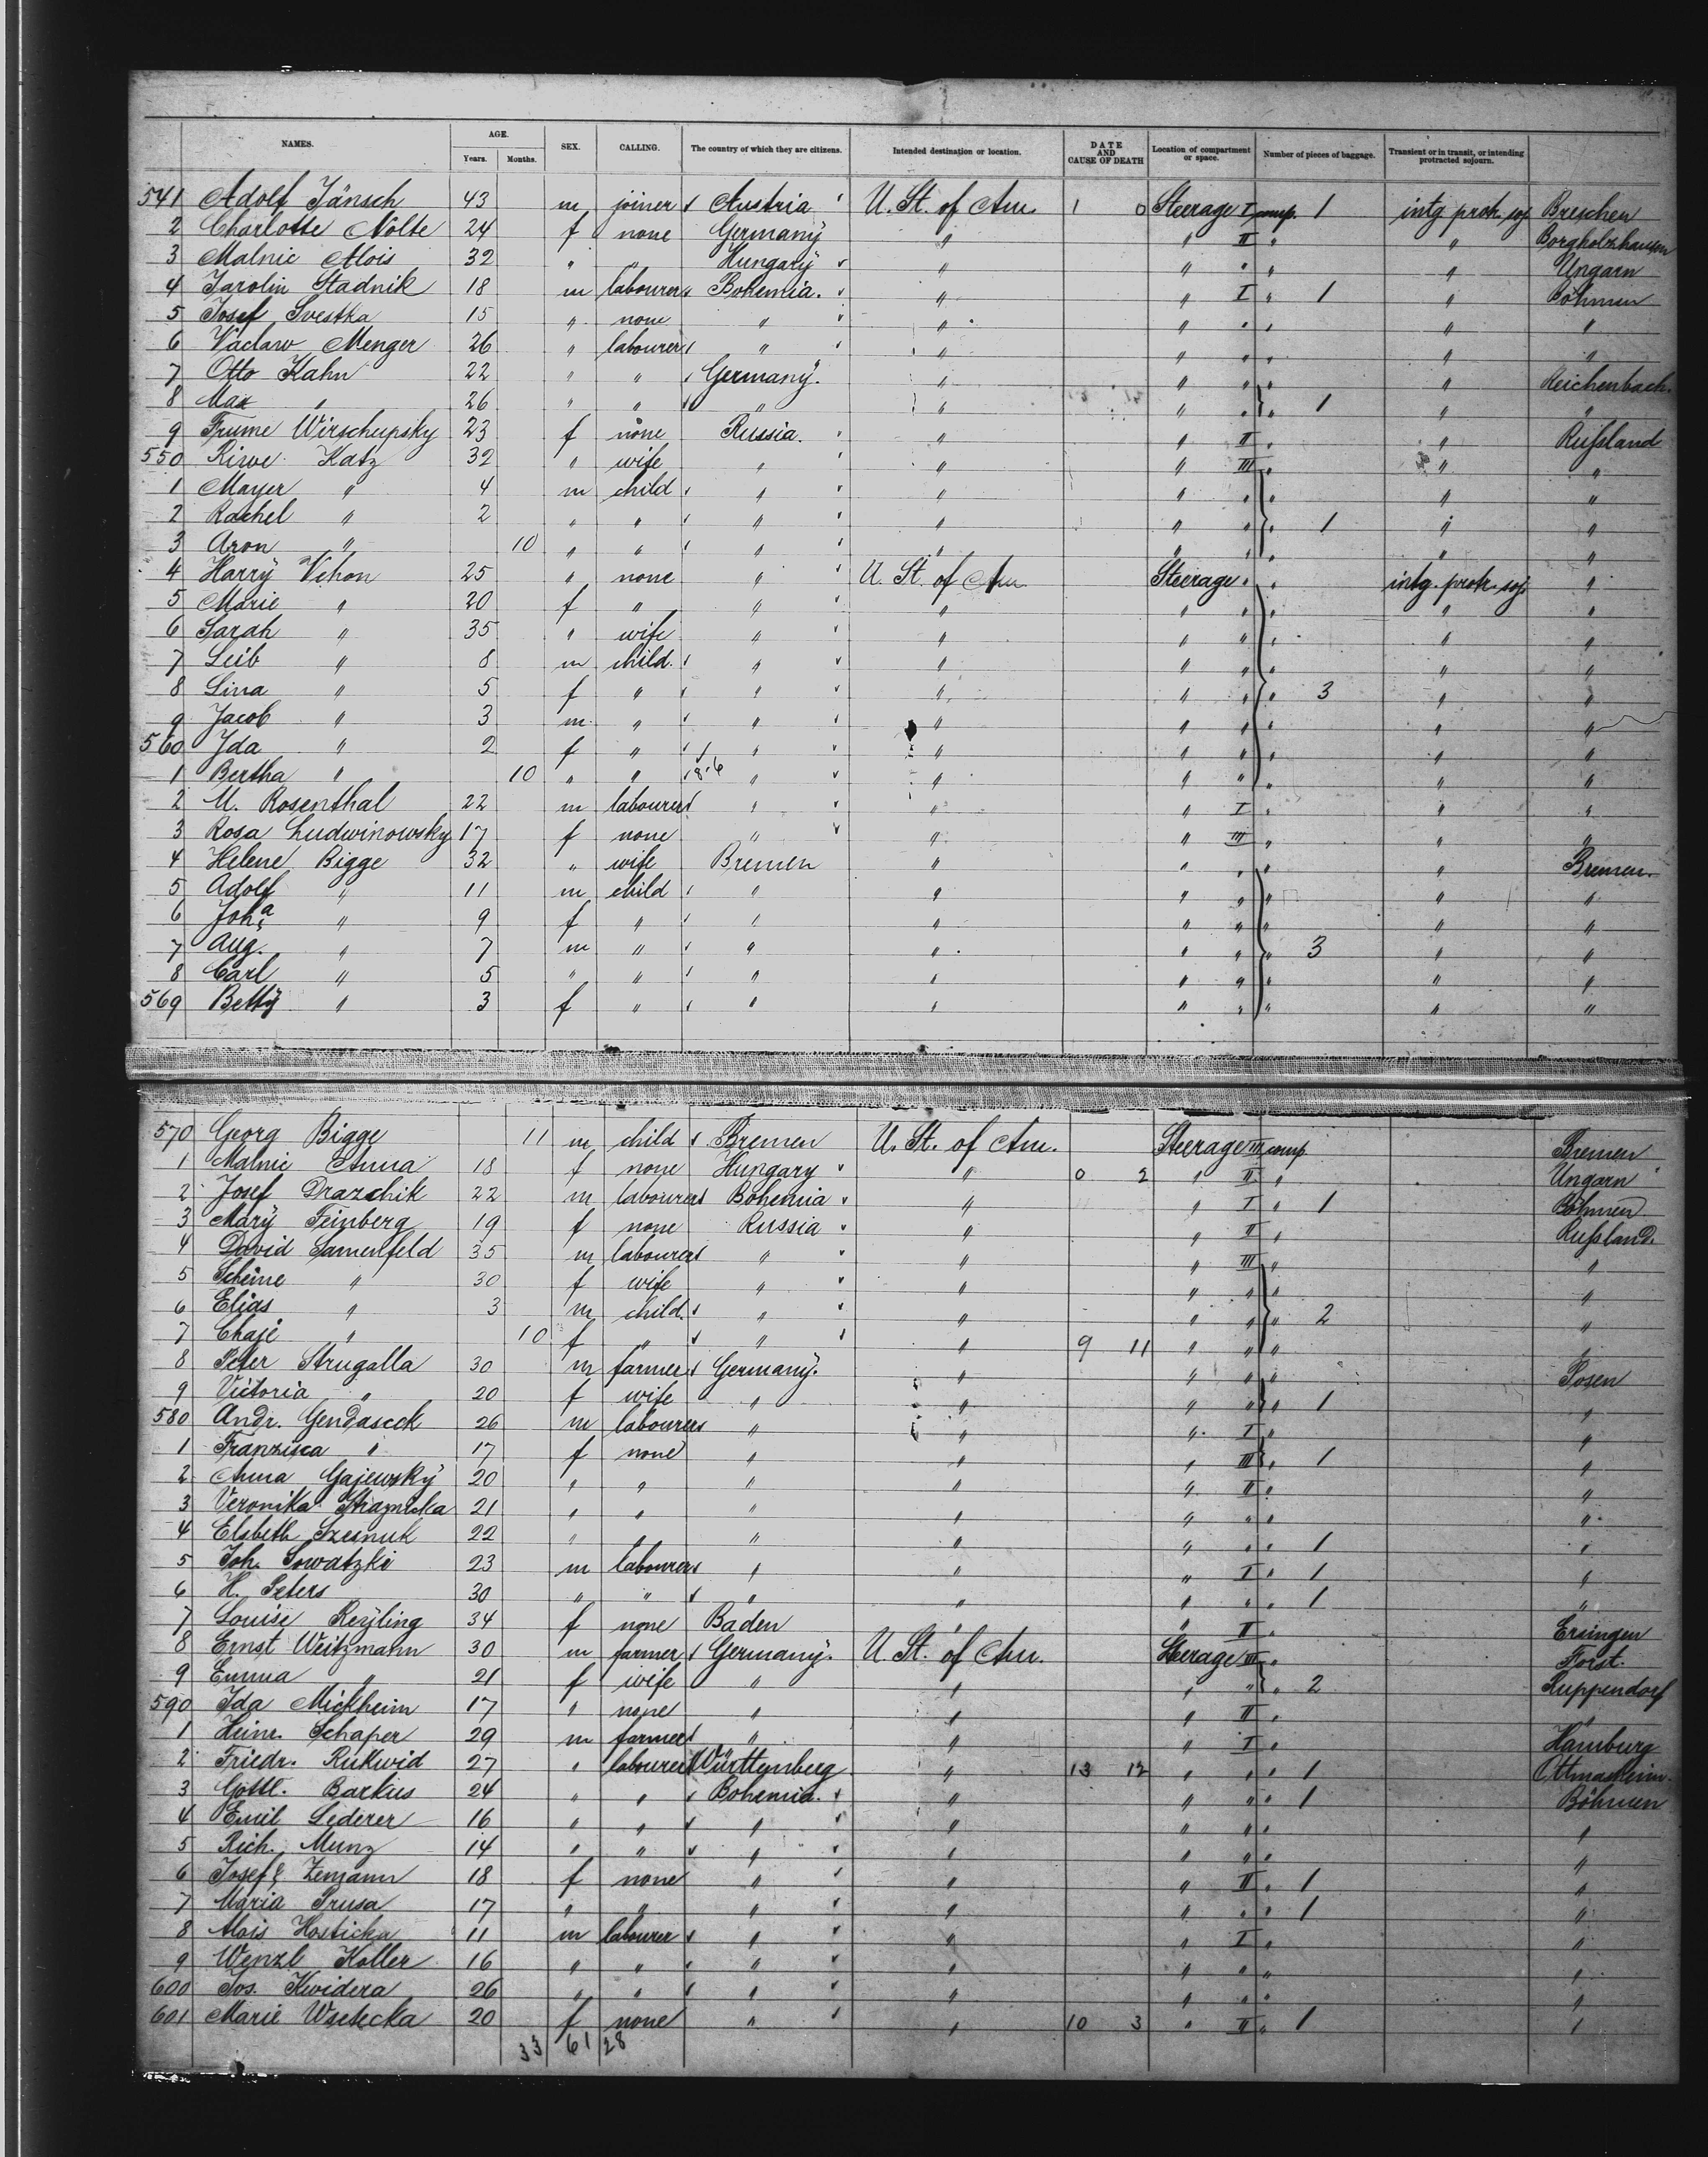 NAMES. AGE. Years. Months. SEX. CALLING. The country of which they are citizens. Intended destination or location. DATE AND CAUSE OF DEATH Location of compartment or space. Number of pieces of baggage. Transient or in transit, or intending protracted sojourn.
541 Adolf Jänsch 43 m joiner Austria U. St. of Am. 1 0 Steerage I comp. 1 intg protr. soj. Breschen
2 Charlotte Nolte 24 f none Germany " " II " " Borgholzhausen
3 Malnic Alois 32 " " Hungary " " " " " Ungarn
4 Jarolin Stadnik 18 m labourer Bohemia. " " I " 1 " Böhmen
5 Josef Svestka 15 " none " " " " " " "
6 Vaclaw Menger 26 " labourer " " " " " " "
7 Otto Kahn 22 " " Germany. " " " " " Reichenbach.
8 Max " 26 " " " " " " " 1 " "
9 Frume Wirschupsky 23 f none Russia. " " II " " Rußland
550 Riwe Katz 32 " wife " " " III " " "
1 Mayer " 4 m child " " " " " " "
2 Rachel " 2 " " " " " " " 1 " "
3 Aron " 10 " " " " " " " " "
4 Harry Vehon 25 " none " U. St. of Am. Steerage " " intg. protr. soj. "
5 Marie " 20 f " " " " " " " "
6 Sarah " 35 " wife " " " " " " "
7 Leib " 8 m child. " " " " " " "
8 Lina " 5 f " " " " " " 3 " "
9 Jacob " 3 m. " " " " " " " "
560 Ida " 2 f " " " " " " " "
1 Bertha " 10 " " 8.6 " " " " " " "
2 M. Rosenthal 22 m labourer " " " I " " "
3 Rosa Ludwinowsky 17 f none " " " III " " "
4 Helene Bigge 32 " wife Bremen " " " " " Bremen.
5 Adolf " 11 m child " " " " " " "
6 Joh.a " 9 f " " " " " " " "
7 Aug. " 7 m " " " " " " 3 " "
8 Carl " 5 " " " " " " " " "
569 Betty " 3 f " " " " " " " "
570 Georg Bigge 11 m child Bremen U. St. of Am. Steerage III comp. Bremen
1 Malnic Anna 18 f none Hungary " 0 2 " II " Ungarn
2 Josef Drazchik 22 m labourer Bohemia " " I " 1 Böhmen
3 Mary Feinberg 19 f none Russia " " II " Rußland.
4 David Samenfeld 35 m labourer " " " III " "
5 Scheine " 30 f wife " " " " " "
6 Elias " 3 m child. " " " " " 2 "
7 Chaje " 10 f " " " 9 11 " " " "
8 Peter Strugalla 30 m farmer Germany. " " " " Posen
9 Victoria " 20 f wife " " " " " 1 "
580 Andr. Gendaseck 26 m labourer " " " I " "
1 Franzisca " 17 f none " " " III " 1 "
2 Anna Gajewsky 20 " " " " " II " "
3 Veronika 21 " " " " " " " "
4 Elsbeth Szesnuk 22 " " " " " " " 1 "
5 Joh. Sowatzki 23 m labourer " " " I " 1 "
6 H. Peters 30 " " " " " " " 1 "
7 Louise Reyling 34 f none Baden " " II " Ersingen
8 Ernst Weitzmann 30 m farmer Germany. U. St. of Am. Steerage III " Forst.
9 Emma " 21 f wife " " " " " 2 Ruppendorf
590 Ida Mickheim 17 " none " " " II " "
1 Heinr. Schaper 29 m farmer " " " I " Hamburg
2 Friedr. Rukwid 27 " labourer Württemberg " 13 12 " " " 1 Ottmarsheim.
3 Gottl. Barkus 24 " " Bohemia. " " " " 1 Böhmen
4 Emil Lederer 16 " " " " " " " "
5 Rich. Munz 14 " " " " " " " "
6 Josefa Zemann 18 f none " " " II " 1 "
7 Maria Prusa 17 " " " " " " " 1 "
8 Alois Hosticka 11 m labourer " " " I " "
9 Wenzl Koller 16 " " " " " " " "
600 Jos. Kwidera 26 " " " " " " " "
601 Marie Wsetecka 20 f none " " 10 3 " II " 1 "
33 61 28